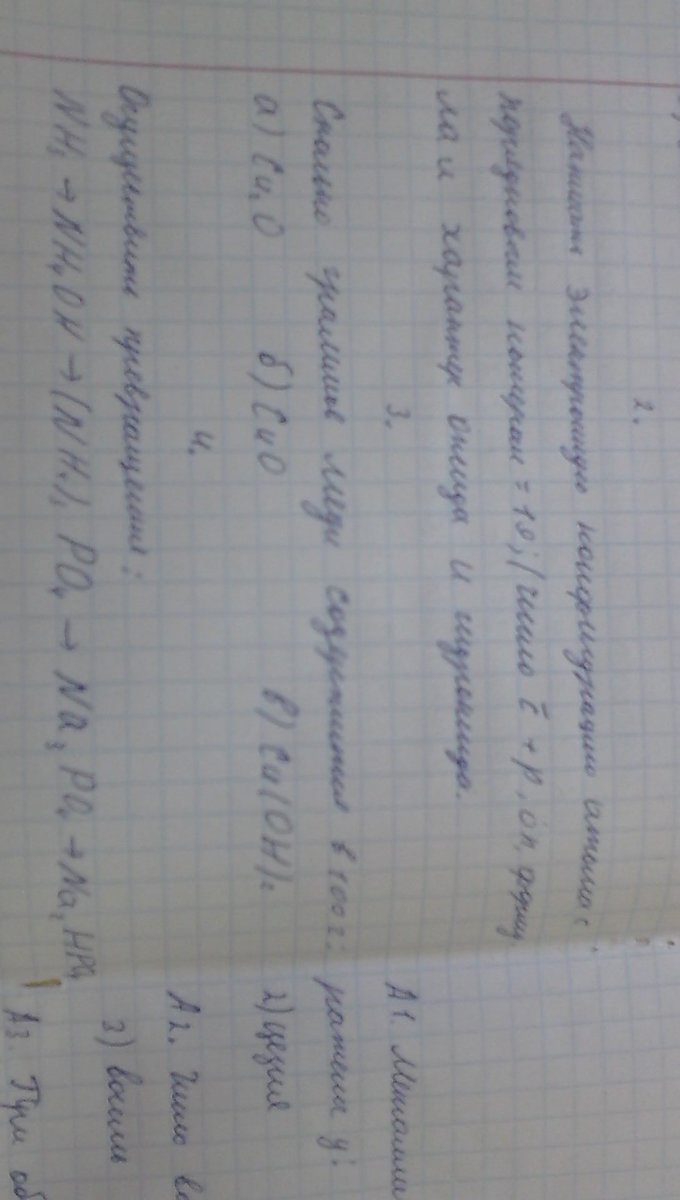 2.
Написать электронную конфигурацию атома с
порядковым номером = 18; / число ē + p, on, форму
ла и характер оксида и гидроксида.
3.
Сколько граммов меди содержится в 100 г:
а) Cu₂O б) CuO в) Cu(OH)₂
4.
Осуществить превращения:
NH₃ → NH₄OH → (NH₄)₃PO₄ → Na₃PO₄ → Na₂HPO₄
А1. Металли
ратим у:
2) цезия
А2. Число ва
3) восемь
А3. При об